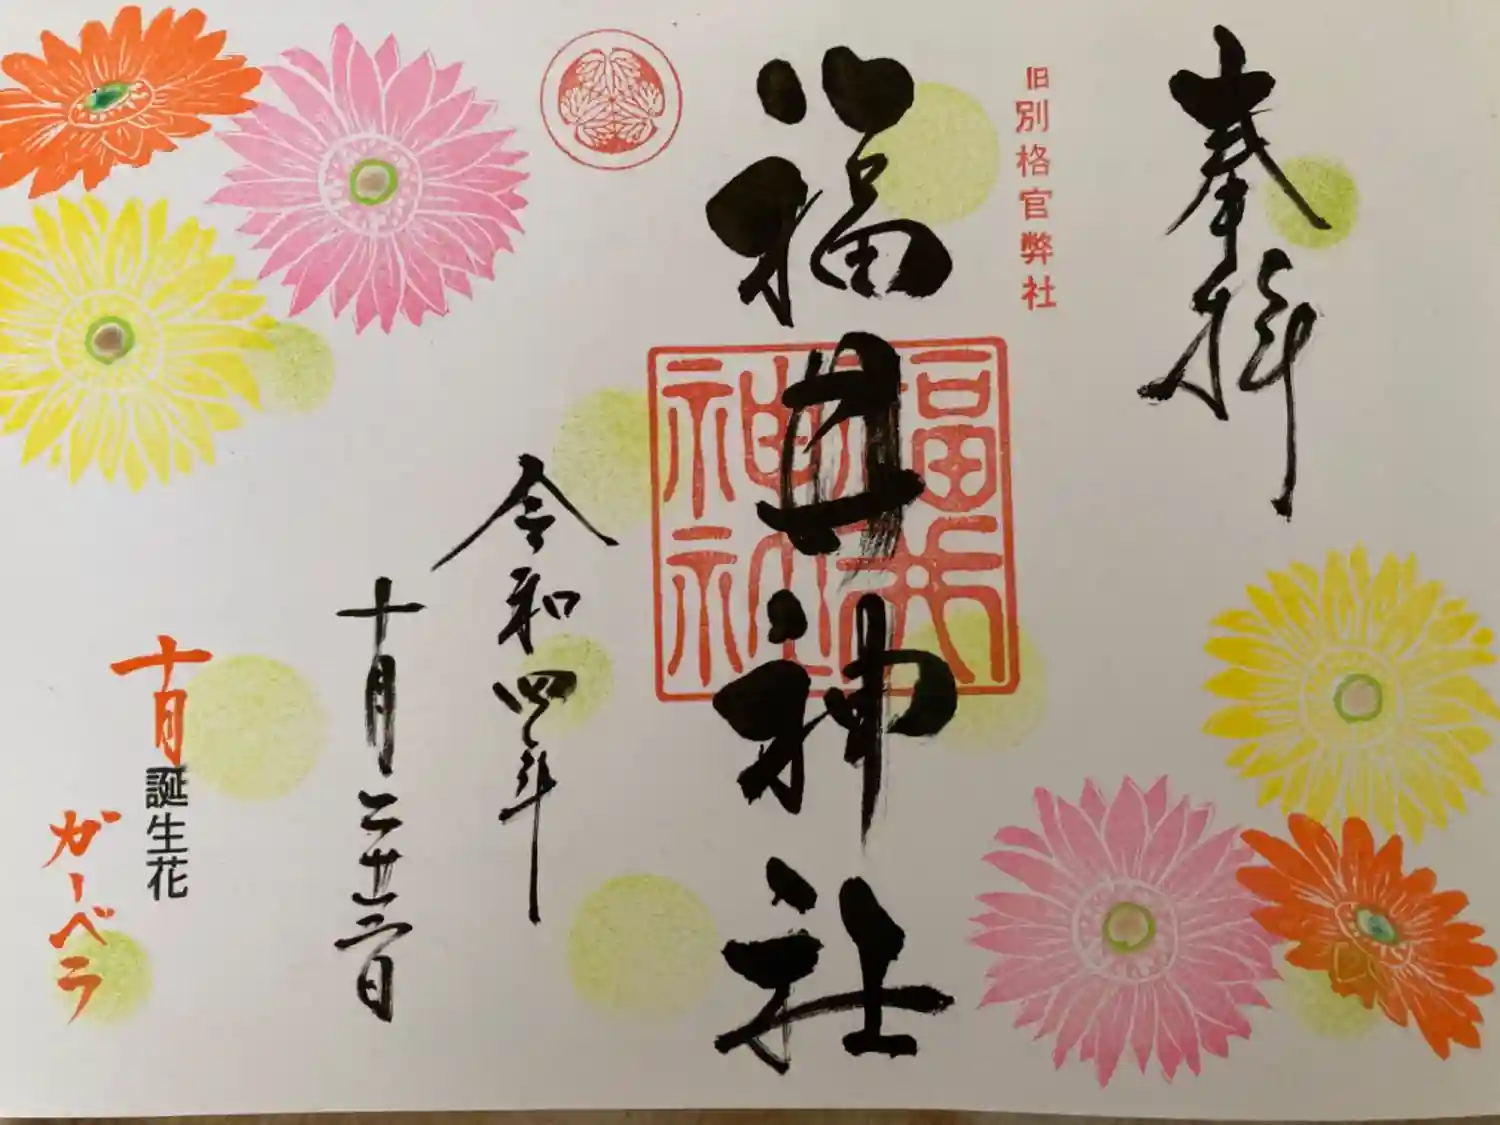 奉拝
旧別格官弊社
福井神社
福井
神社
令和四年
十月二十三日
十月誕生花
ガーベラ